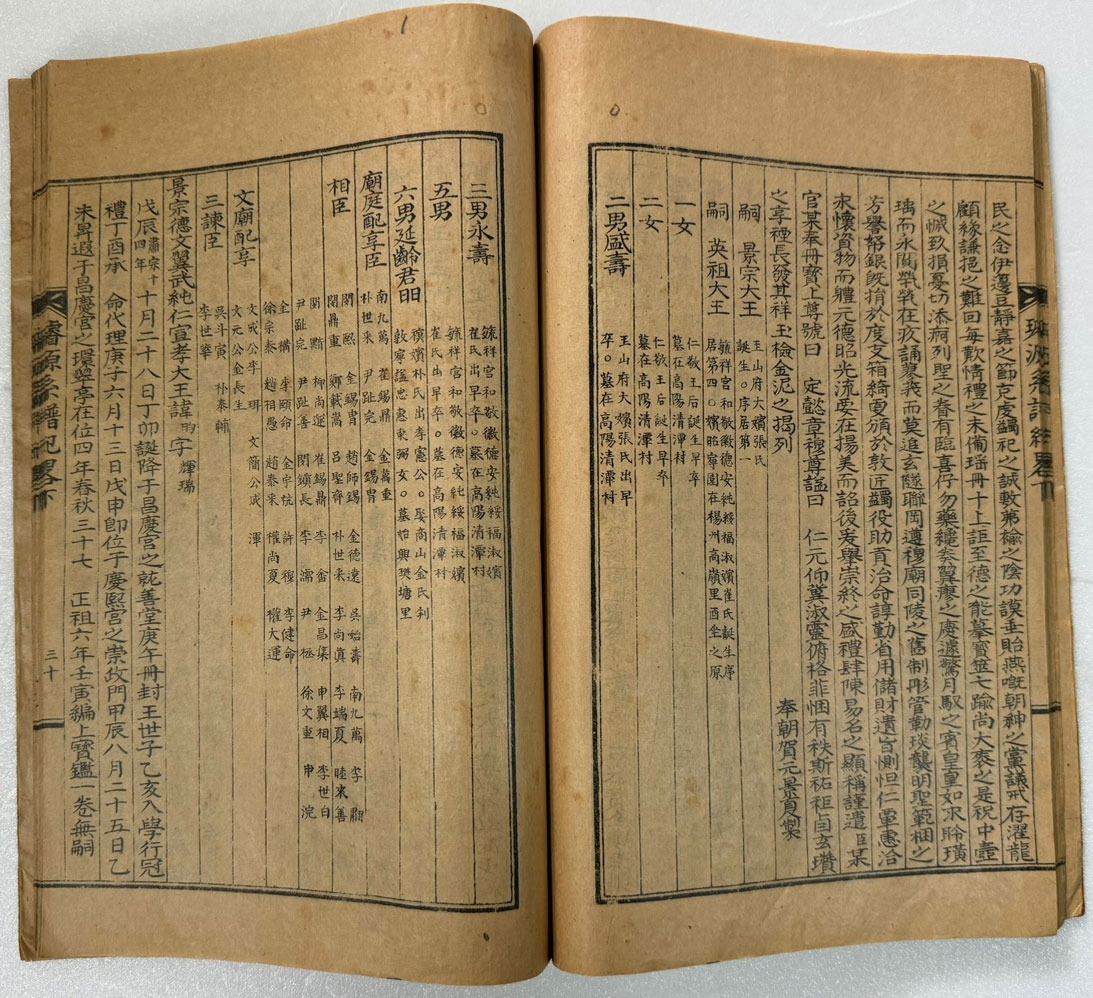 民之念伊邊豆靜嘉之節克虔蠲祀之誠敷第褕之陰功謨垂貽燕嘅朝紳之黨議戒存濯龍
顧緣謙挹之難回每歎情禮之未備瑤冊十上詎至德之能摹寶筵七踰尚大耋之是祝中壼
之慽玖損憂切添痾列聖之眷有臨喜仔勿藥纏奏翼瘳之慶遽驚月馭之賓皇皇如求聆璜
瑀而永閟煢煢在疚誦蓼莪而莫追玄隧聯岡遵穆廟同陵之舊制彤管勒琰襲明聖範梱之
芳譽帑銀旣捐於度支箱綺更頒於敦匠蠲役助貢治命諄勤省用儲財遺旨惻怛仁覃惠洽
永懷資物而體元德昭光流要在揚美而詔後爰擧崇終之盛禮肆陳易名之顯稱謹遣臣某
官某奉冊寶上尊號曰 定懿章穆尊謚曰 仁元仰冀淑靈俯格菲悃有秩斯祜秬卣玄瓚
之享禋長發其祥玉檢金泥之揭列 奉朝賀元景夏製
嗣 景宗大王 玉山府大嬪張氏
誕生。序居第一
嗣 英祖大王 毓祥宮和敬徽德安純綏福淑嬪崔氏誕生序
居第四。嬪昭寧園在楊州高嶺里酉坐之原
一女 仁敬王后誕生早卒
墓在高陽清潭村
二女 仁敬王后誕生早卒
墓在高陽清潭村
二男盛壽 玉山府大嬪張氏出早
卒。墓在高陽清潭村
璿源系譜紀畧下
三男永壽 毓祥宮和敬徽德安純綏福淑嬪
崔氏出早卒。墓在高陽清潭村
五男 毓祥宮和敬徽德安純綏福淑嬪
崔氏出早卒。墓在高陽清潭村
六男延齡君昍 䄙嬪朴氏出孝憲公。娶商山金氏判
敦寧謚忠憲東弼女。墓始興樊塘里
廟庭配享臣 南九萬 崔錫鼎 金萬重
朴世采 尹趾完 金錫冑
相臣 閔熙 金錫冑 趙師錫 金德遠 吳始壽 南九萬 李𩔰
閔鼎重 鄭載嵩 呂聖齊 朴世采 李尚眞 李端夏 睦來善
閔黯 柳尚運 崔錫鼎 李畬 金昌集 申翼相 李世白
尹趾完 尹趾善 閔鎭長 李濡 尹拯 徐文重 申浣
金構 李頤命 金宇杭 許穆 李健命
徐宗泰 趙相愚 趙泰采 權尚夏 權大運
文廟配享 文成公李珥 文簡公成渾
文元公金長生
三諫臣 吳斗寅 朴泰輔
李世華
景宗德文翼武純仁宣孝大王諱昀字輝瑞
戊辰肅宗十四年十月二十八日丁卯誕降于昌慶宮之就善堂庚午冊封王世子乙亥入學行冠
禮丁酉承 命代理庚子六月十三日戊申卽位于慶熙宮之崇政門甲辰八月二十五日乙
未昇遐于昌慶宮之環翠亭在位四年春秋三十七 正祖六年壬寅編上寶鑑一卷無嗣
璿源系譜紀畧下
三十